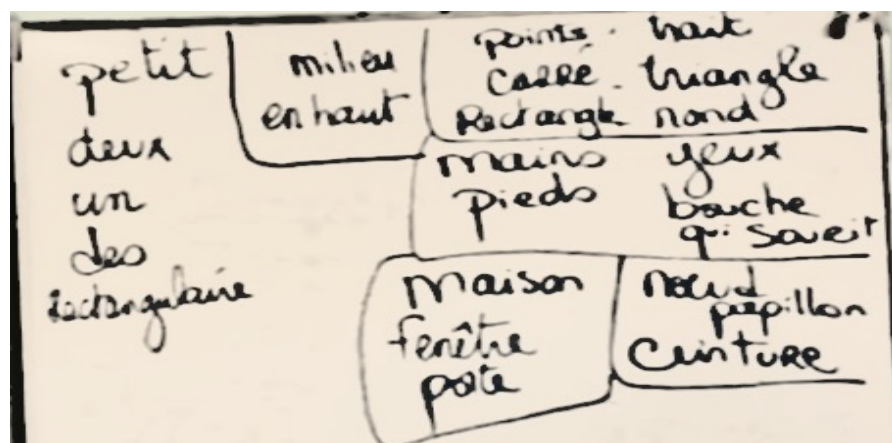 petit
deux
un
des
rectangulaire
milieu
en haut
points - trait
Carré - triangle
Rectangle rond
mains yeux
pieds bouche
qui sourit
maison
fenêtre
porte
nœud
papillon
Ceinture